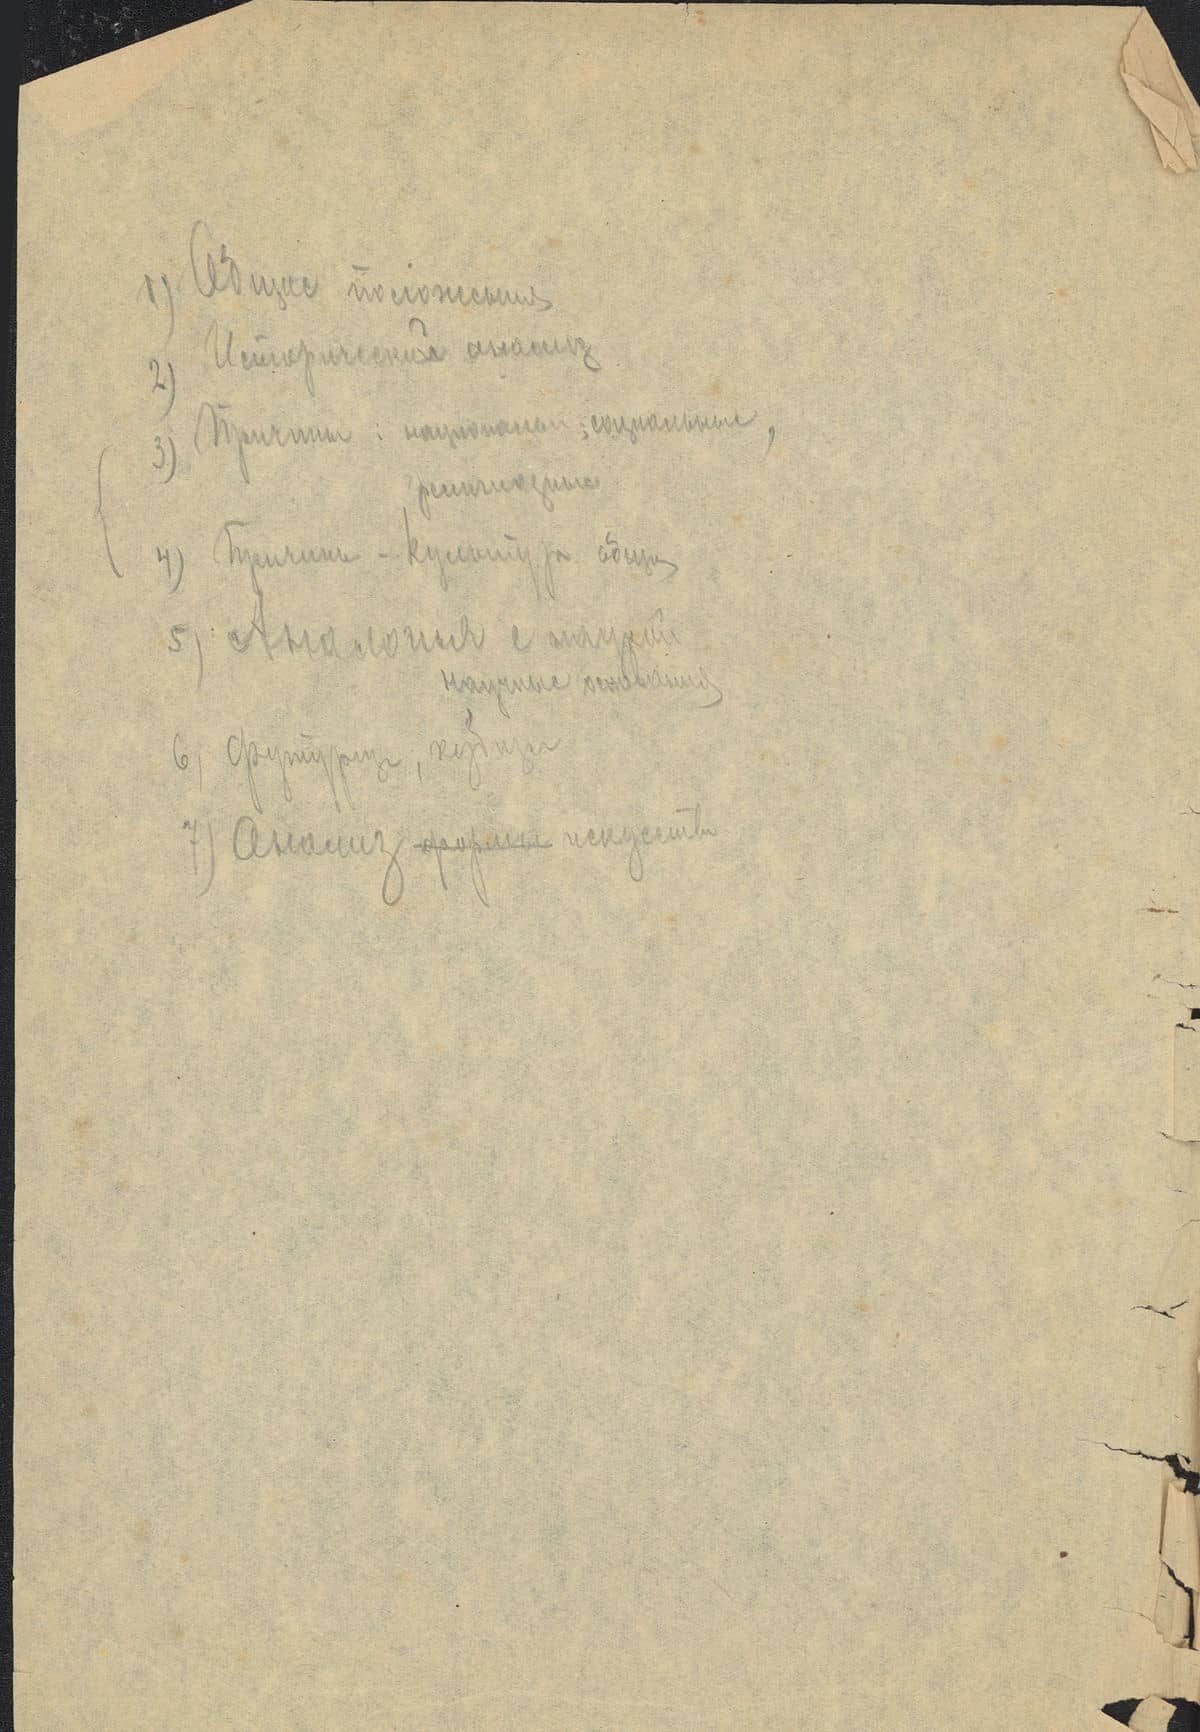 1) Общие положения
2) Исторический анализ
3) Причины: социальные,
религиозные
4) Причины - культура общая
5) Аналогия с наукой
научные основания
6) футуризм, кубизм
7) Анализ формы искусства